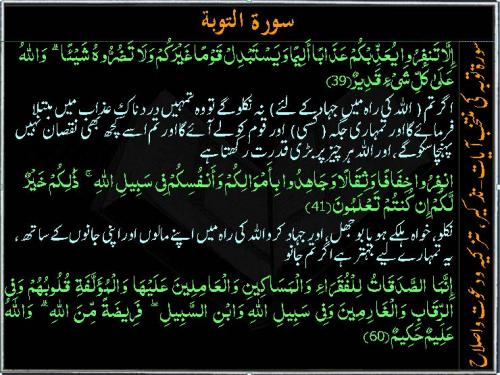 سورة التوبة
إِلَّا تَنفِرُوا يُعَذِّبْكُمْ عَذَابًا أَلِيمًا وَيَسْتَبْدِلْ قَوْمًا غَيْرَكُمْ وَلَا تَضُرُّوهُ شَيْئًا ۗ وَاللَّهُ
عَلَىٰ كُلِّ شَيْءٍ قَدِيرٌ (39)
اگر تم (اللہ کی راہ میں جہاد کے لئے) نہ نکلو گے تو وہ تمہیں دردناک عذاب میں مبتلا
فرمائے گا اور تمہاری جگہ (کسی) اور قوم کو لے آئے گا اور تم اسے کچھ بھی نقصان نہیں
پہنچا سکو گے، اور اللہ ہر چیز پر بڑی قدرت رکھتا ہے
انفِرُوا خِفَافًا وَثِقَالًا وَجَاهِدُوا بِأَمْوَالِكُمْ وَأَنفُسِكُمْ فِي سَبِيلِ اللَّهِ ۚ ذَٰلِكُمْ خَيْرٌ
لَّكُمْ إِن كُنتُمْ تَعْلَمُونَ (41)
نکلو، خواہ ہلکے ہو یا بوجھل، اور جہاد کرو اللہ کی راہ میں اپنے مالوں اور اپنی جانوں کے ساتھ،
یہ تمہارے لیے بہتر ہے اگر تم جانو
إِنَّمَا الصَّدَقَاتُ لِلْفُقَرَاءِ وَالْمَسَاكِينِ وَالْعَامِلِينَ عَلَيْهَا وَالْمُؤَلَّفَةِ قُلُوبُهُمْ وَفِي
الرِّقَابِ وَالْغَارِمِينَ وَفِي سَبِيلِ اللَّهِ وَابْنِ السَّبِيلِ ۖ فَرِيضَةً مِّنَ اللَّهِ ۗ وَاللَّهُ
عَلِيمٌ حَكِيمٌ (60)
سورۃ توبہ کی منتخب آیات - تذکیر، تزکیہ و دعوت و اصلاح